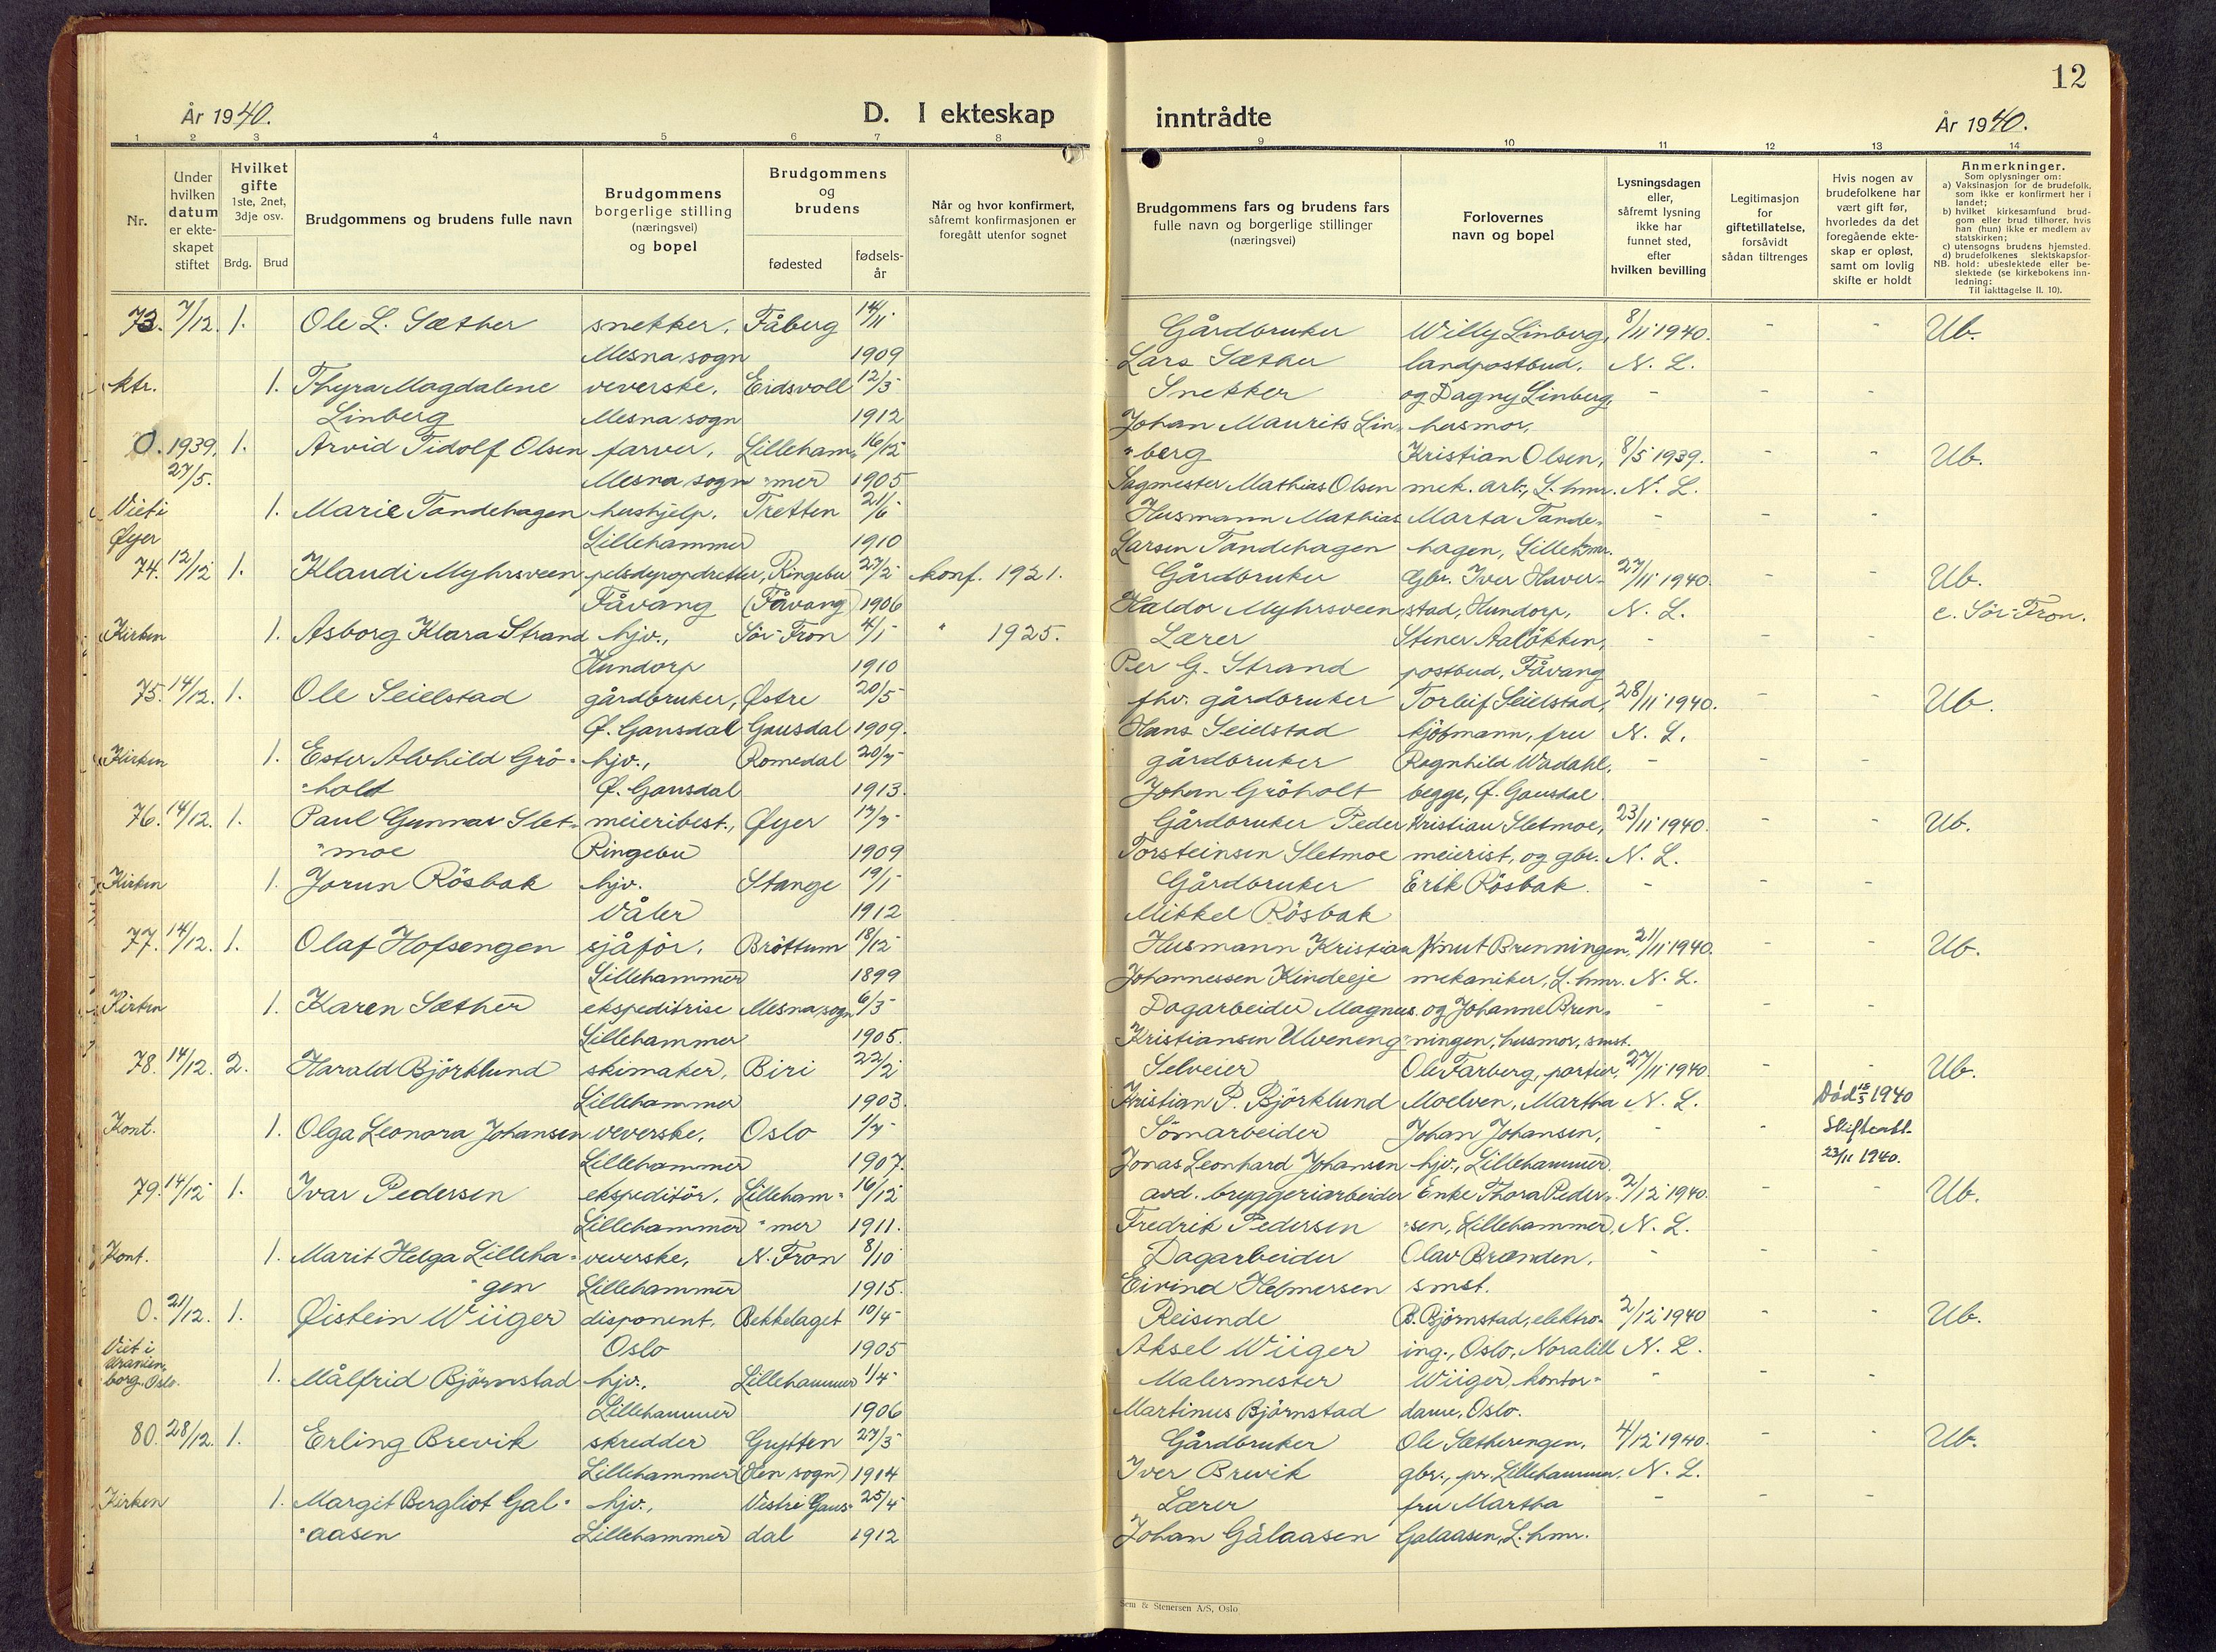 12
År 1940.
D. I ekteskap
inntrådte
År 1940.
1 2 3 4 5 6 7 8
9 10 11 12 13 14
Nr.
Under hvilken datum er ekte- skapet stiftet
Hvilket gifte 1ste, 2net, 3dje osv.
Brdg. Brud
Brudgommens og brudens fulle navn
Brudgommens borgerlige stilling (næringsvei) og bopel
Brudgommens og brudens
fødested
fødsels- år
Når og hvor konfirmert, såfremt konfirmasjonen er foregått utenfor sognet
Brudgommens fars og brudens fars fulle navn og borgerlige stillinger (næringsvei)
Forlovernes navn og bopel
Lysningsdagen eller, såfremt lysning ikke har funnet sted, efter hvilken bevilling
Legitimasjon for giftetillatelse, forsåvidt sådan tiltrenges
Hvis nogen av brudefolkene har vært gift før, hvorledes da det foregående ekte- skap er opløst, samt om lovlig skifte er holdt
Anmerkninger.
Som oplysninger om:
a) Vaksinasjon for de brudefolk, som ikke er konfirmert her i landet;
b) hvilket kirkesamfund brud- gom eller brud tilhører, hvis han (hun) ikke er medlem av statskirken;
c) utensogns brudens hjemsted.
d) brudefolkenes slektskapsfor-
NB. hold: ubeslektede eller be- slektede (se kirkebokens inn- ledning:
Til iakttagelse II. 10).
73. 7/12. 1. Ole L. Sæther snekker, Fåberg 14/11 Gårdbruker Willy Linberg, 8/11 1940. - - Ub.
Mesna sogn 1909 Lars Sæther landpostbud. N. L.
ktr. 1. Thyra Magdalene veverske, Eidsvoll 12/3 Snekker og Dagny Linberg, - - -
Linberg Mesna sogn 1912 Johan Maurits Lin- husmor,
O. 1939. 1. Arvid Tidolf Olsen farver, Lilleham- 16/12 "berg Kristian Olsen, 8/5 1939. - - Ub.
27/5. Mesna sogn "mer 1905 Sagmester Mathias Olsen mek. arb., L.hmr. N. L.
Viet i 1. Marie Tandehagen hushjelp. Tretten 21/6 Husmann Mathias Marta Tande- - - -
Øyer Lillehammer 1910 Larsen Tandehagen hagen, Lillehmr.
74. 12/12 1. Klaudi Myhrsveen pelsdyropdretter, Ringebu 27/2 konf. 1921. Gårdbruker Gbr. Iver Haver- 27/11 1940. - - Ub.
Fåvang (Fåvang) 1906 Haldor Myhrsveen stad, Hundorp, N. L. c. Sör-Fron.
Kirken 1. Asborg Klara Strand hjv., Sör-Fron 4/1 " 1925. Lærer Stener Aalökken, - - -
Hundorp 1910 Per G. Strand postbud, Fåvang
75. 14/12. 1. Ole Seielstad gårdbruker, Østre 20/5 fhv. gårdbruker Torleif Seielstad, 28/11 1940. - - Ub.
Ø. Gausdal Gausdal 1909. Hans Seielstad kjöbmann, fru N. L.
Kirken 1. Ester Alvhild Grö- hjv., Romedal 20/7 gårdbruker Ragnhild Wadahl, - - -
"holt Ø. Gausdal 1913. Johan Gröholt begge, Ø. Gausdal
76. 14/12. 1. Paul Gunnar Slet- meieribest., Øyer 17/7 Gårdbruker Peder Kristian Sletmoe, 23/11 1940. - - Ub.
"moe Ringebu 1909 Torsteinsen Sletmoe meierist, og gbr. N. L.
Kirken 1. Jorun Rösbak hjv. Stange 19/1 Gårdbruker Erik Rösbak. - - -
Våler 1912 Mikkel Rösbak
77. 14/12. 1. Olaf Hofsengen sjåför, Bröttum 18/12 Husmann Kristian Knut Brenningen, 21/11 1940. - - Ub.
Lillehammer 1899 Johannessen Kindleje mekaniker, L.hmr. N. L.
Kirken 1. Karen Sæther ekspeditrise Mesna sogn 6/3 Dagarbeider Magnus og Johanne Bren- - - -
Lillehammer 1905. Kristiansen Ulveneng "ningen, husmor, smst.
78. 14/12. 2. Harald Björklund skimaker, Biri 22/2 Selveier Ole Farberg, portier, 27/11 1940. - - Ub.
Lillehammer 1903. Kristian P. Björklund Moelven, Martha N. L. Död 18/5 1940
Kont. 1. Olga Leonora Johansen veverske, Oslo 1/7 Sömarbeider Johan Johansen, - - Skifteatt.
Lillehammer 1907. Jonas Leonhard Johansen hjv., Lillehammer. 23/11 1940.
79. 14/12 1. Ivar Pedersen ekspeditör, Lilleham- 16/12 avd. bryggeriarbeider Enke Thora Peder- 2/12 1940. - - Ub.
Lillehammer "mer 1911. Fredrik Pedersen "sen, Lillehammer, N. L.
Kont. 1. Marit Helga Lilleha- veverske, N. Fron 8/10 Dagarbeider Olav Brænden, - - -
"gen Lillehammer 1915. Eivind Helmersen smst.
O. 21/12. 1. Øistein Wiiger disponent, Bekkelaget 10/4 Reisende B. Björnstad, elektro- 2/12 1940 - - Ub.
Viet i Oslo 1905 Aksel Wiiger ing., Oslo, Noralill N. L.
Uranien- borg, Oslo. 1. Målfrid Björnstad hjv., Lillehammer 1/4 Malermester Wiiger, kontor- - - -
Lillehammer 1906 Martinus Björnstad dame, Oslo.
80. 28/12. 1. Erling Brevik skredder Grytten 27/3 Gårdbruker Ole Sætherengen, 4/12 1940. - - Ub.
Lillehammer (Hen sogn) 1914 Iver Brevik gbr., pr. Lillehammer. N. L.
Kirken 1. Margit Bergliot Gal- hjv., Vestre Gaus- 25/4 Lærer fru Martha - - -
"aasen Lillehammer dal 1912 Johan Gålaasen Galaasen, L.hmr.
Sem & Stenersen A/S, Oslo